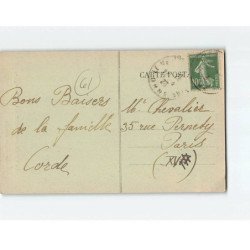 CARTE POSTALE
61
Bons Baisers
de la famille
Corde
Mr Chevalier
35 rue Pernety
Paris